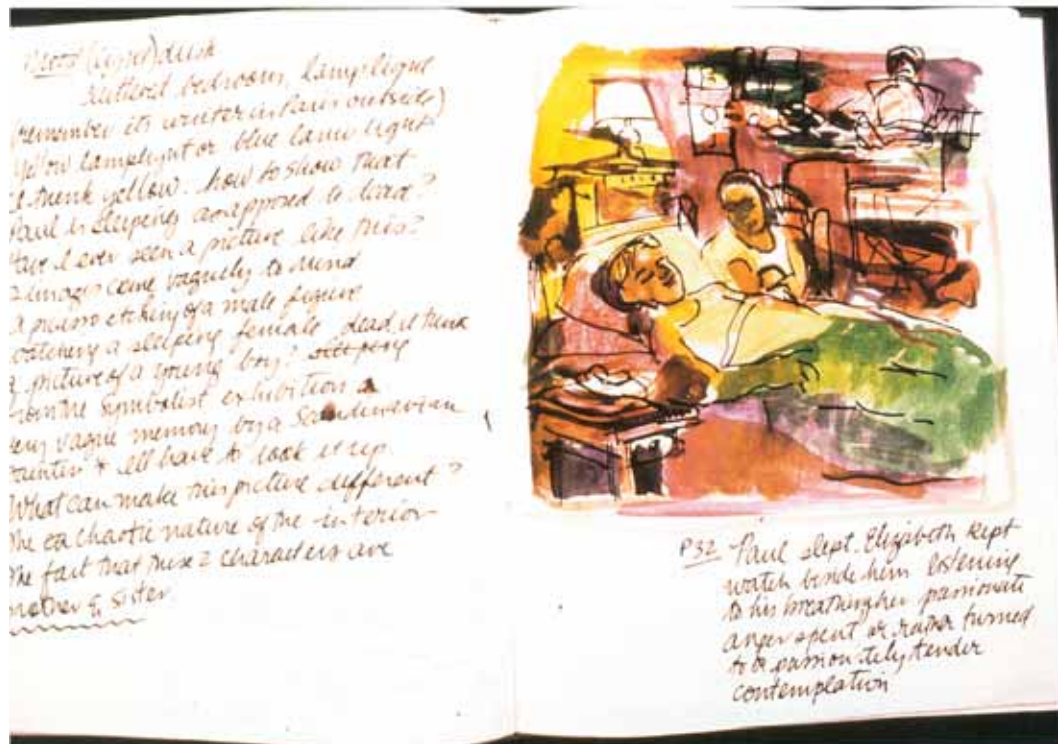 Mood (light) dusk
cluttered bedroom, lamplight
(remember its winter in Paris outside)
Yellow lamplight or blue lamp light
I think yellow. how to show that
Paul is sleeping as opposed to dead?
Have I ever seen a picture like this?
2 images come vaguely to mind
a picasso etching of a male figure
watching a sleeping female, dead, I think
a picture of a young boy? sleeping
from the symbolist exhibition a
very vague memory by a Scandinavian
painter & I'll have to look it up.
What can make this picture different?
The chaotic nature of the interior
The fact that these 2 characters are
brother & sister.
P32 Paul slept. Elizabeth kept
watch beside him listening
to his breathing her passionate
anger spent or rather turned
to a passionately tender
contemplation